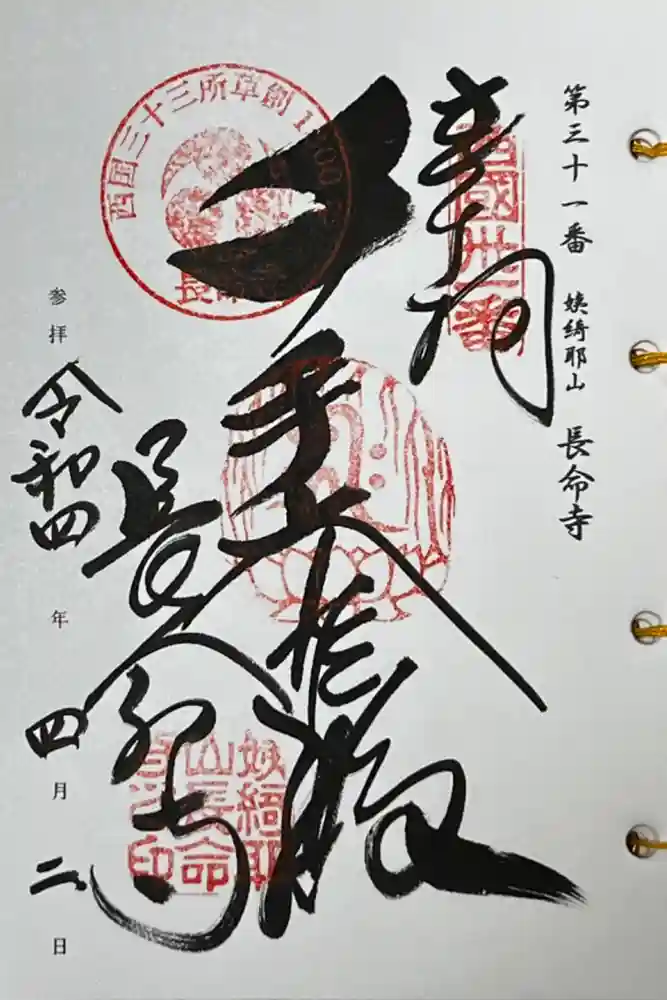 第三十一番 姨綺耶山 長命寺
奉拝
西國卅一番
西国三十三所草創1300
千手大悲殿
長命寺
姨綺耶山長命寺之印
参拝 令和四年四月二日